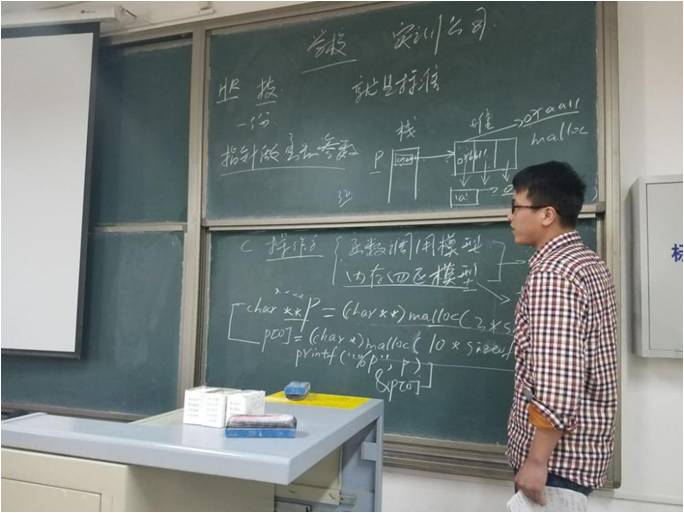 学校 实训公司
HR 技 就是标准
一份
指针做函数参数
栈 堆 0xaa11
malloc
P
0xaa11
'a'
C 操作 函数调用模型
内存四区模型
char ** P = (char **) malloc(
p[0] = (char *) malloc( 10 * sizeof
printf("%p", P)
&p[0]
标